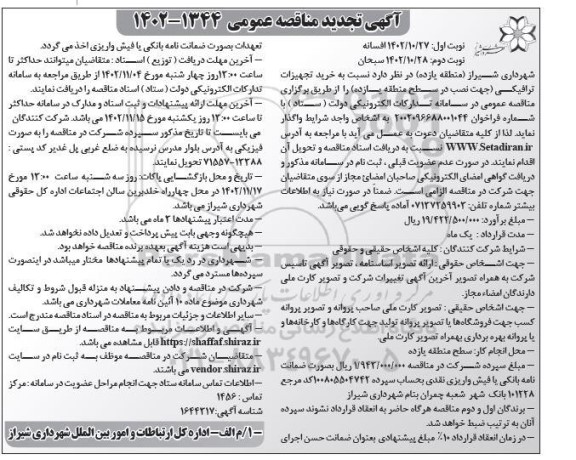 آگهی تجدید مناقصه عمومی ۱۳۴۴-۱۴۰۲
نوبت اول: ۱۴۰۲/۱۰/۲۷ افسانه
نوبت دوم: ۱۴۰۲/۱۰/۲۸ سبحان
شهرداری شیراز (منطقه یازده) در نظر دارد نسبت به خرید تجهیزات
ترافیکی (جهت نصب در سطح منطقه یازده) را از طریق برگزاری
مناقصه عمومی در سامانه تدارکات الکترونیکی دولت ( ستاد ) با
شماره فراخوان ۲۰۰۲۰۹۶۶۸۸۰۰۱۰۴۴ به اشخاص واجد شرایط واگذار
نماید. لذا از کلیه متقاضیان دعوت به عمل می آید با مراجعه به آدرس
WWW.Setadiran.ir نسبت به دریافت اسناد مناقصه و تحویل آن
اقدام نمایند. در صورت عدم عضویت قبلی ، ثبت نام در سامانه مذکور و
دریافت گواهی امضای الکترونیکی صاحبان امضای مجاز از سوی متقاضیان
جهت شرکت در مناقصه الزامی است. ضمناً در صورت نیاز به اطلاعات
بیشتر شماره تلفن: ۰۷۱۳۷۲۵۹۹۰۳ آماده پاسخ گویی می‌باشد.
– مبلغ برآورد: ۱۹/۴۲۲/۵۰۰/۰۰۰ ریال
– مدت قرارداد : یک ماه
– شرایط شرکت کنندگان : کلیه اشخاص حقیقی و حقوقی
– جهت اشخاص حقوقی : ارائه تصویر اساسنامه، تصویر آگهی تاسیس
شرکت به همراه تصویر آخرین آگهی تغییرات شرکت و تصویر کارت ملی
دارندگان امضاء مجاز.
– جهت اشخاص حقیقی : تصویر کارت ملی صاحب پروانه و تصویر پروانه
کسب جهت فروشگاه‌ها یا تصویر پروانه تولید جهت کارگاه‌ها و کارخانه‌ها و
یا پروانه بهره برداری بهمراه تصویر کارت ملی.
– محل انجام کار: سطح منطقه یازده
– مبلغ سپرده شرکت در مناقصه ۱/۹۴۳/۰۰۰/۰۰۰ ریال بصورت ضمانت
نامه بانکی یا فیش واریزی نقدی بحساب سپرده ۱۰۰۸۰۵۵۰۴۷۴۲ کد مرجع
۱۰۱۲۲۸ بانک شهر شعبه چمران بنام شهرداری شیراز
– برندگان اول و دوم مناقصه هرگاه حاضر به انعقاد قرارداد نشوند سپرده
آنان به ترتیب ضبط خواهد شد.
– در زمان انعقاد قرارداد ۱۰٪ مبلغ پیشنهادی بعنوان ضمانت حسن اجرای
تعهدات بصورت ضمانت نامه بانکی یا فیش واریزی اخذ می گردد.
– آخرین مهلت دریافت ( توزیع ) اسناد : متقاضیان میتوانند حداکثر تا
ساعت ۱۲:۰۰ روز چهار شنبه مورخ ۱۴۰۲/۱۱/۰۴ از طریق مراجعه به سامانه
تدارکات الکترونیکی دولت (ستاد ) اسناد مناقصه را دریافت نمایند.
– آخرین مهلت ارائه پیشنهادات و ثبت اسناد و مدارک در سامانه حداکثر
تا ساعت ۱۲:۰۰ روز یکشنبه مورخ ۱۴۰۲/۱۱/۱۵ می باشد. شرکت کنندگان
می بایست تا تاریخ مذکور سپرده شرکت در مناقصه را به صورت
فیزیکی به آدرس بلوار مدرس نرسیده به ضلع غربی پل غدیر کد پستی :
۷۱۵۵۷-۱۳۲۸۸ تحویل نمایند.
– تاریخ و محل بازگشایی پاکات: روز سه شنبه ساعت ۱۲:۰۰ مورخ
۱۴۰۲/۱۱/۱۷ در محل چهارراه خلدبرین سالن اجتماعات اداره کل حقوقی
شهرداری شیراز می باشد.
– مدت اعتبار پیشنهادها ۳ ماه می باشد.
– هیچگونه وجهی بابت پیش پرداخت و تعدیل داده نخواهد شد.
– بدیهی است هزینه آگهی بعهده برنده مناقصه خواهد بود.
– شهرداری در رد یک یا تمام پیشنهادها مختار میباشد در اینصورت
سپرده‌ها مسترد می گردد.
– شرکت در مناقصه و دادن پیشنهاد به منزله قبول شروط و تکالیف
شهرداری موضوع ماده ۱۰ آئین نامه معاملات شهرداری می باشد.
– سایر اطلاعات و جزئیات مربوط به مناقصه در اسناد مناقصه مندرج است.
– آگهی و اطلاعات مربوط به مناقصه از طریق سایت
https://shaffaf.shiraz.ir قابل مشاهده می باشد.
– متقاضیان شرکت در مناقصه موظف به ثبت نام در سایت
vendor.shiraz.ir می باشند.
– اطلاعات تماس سامانه ستاد جهت انجام مراحل عضویت در سامانه : مرکز
تماس : ۱۴۵۶
شناسه آگهی: ۱۶۴۴۲۱۷
۱/م الف – اداره کل ارتباطات و امور بین الملل شهرداری شیراز